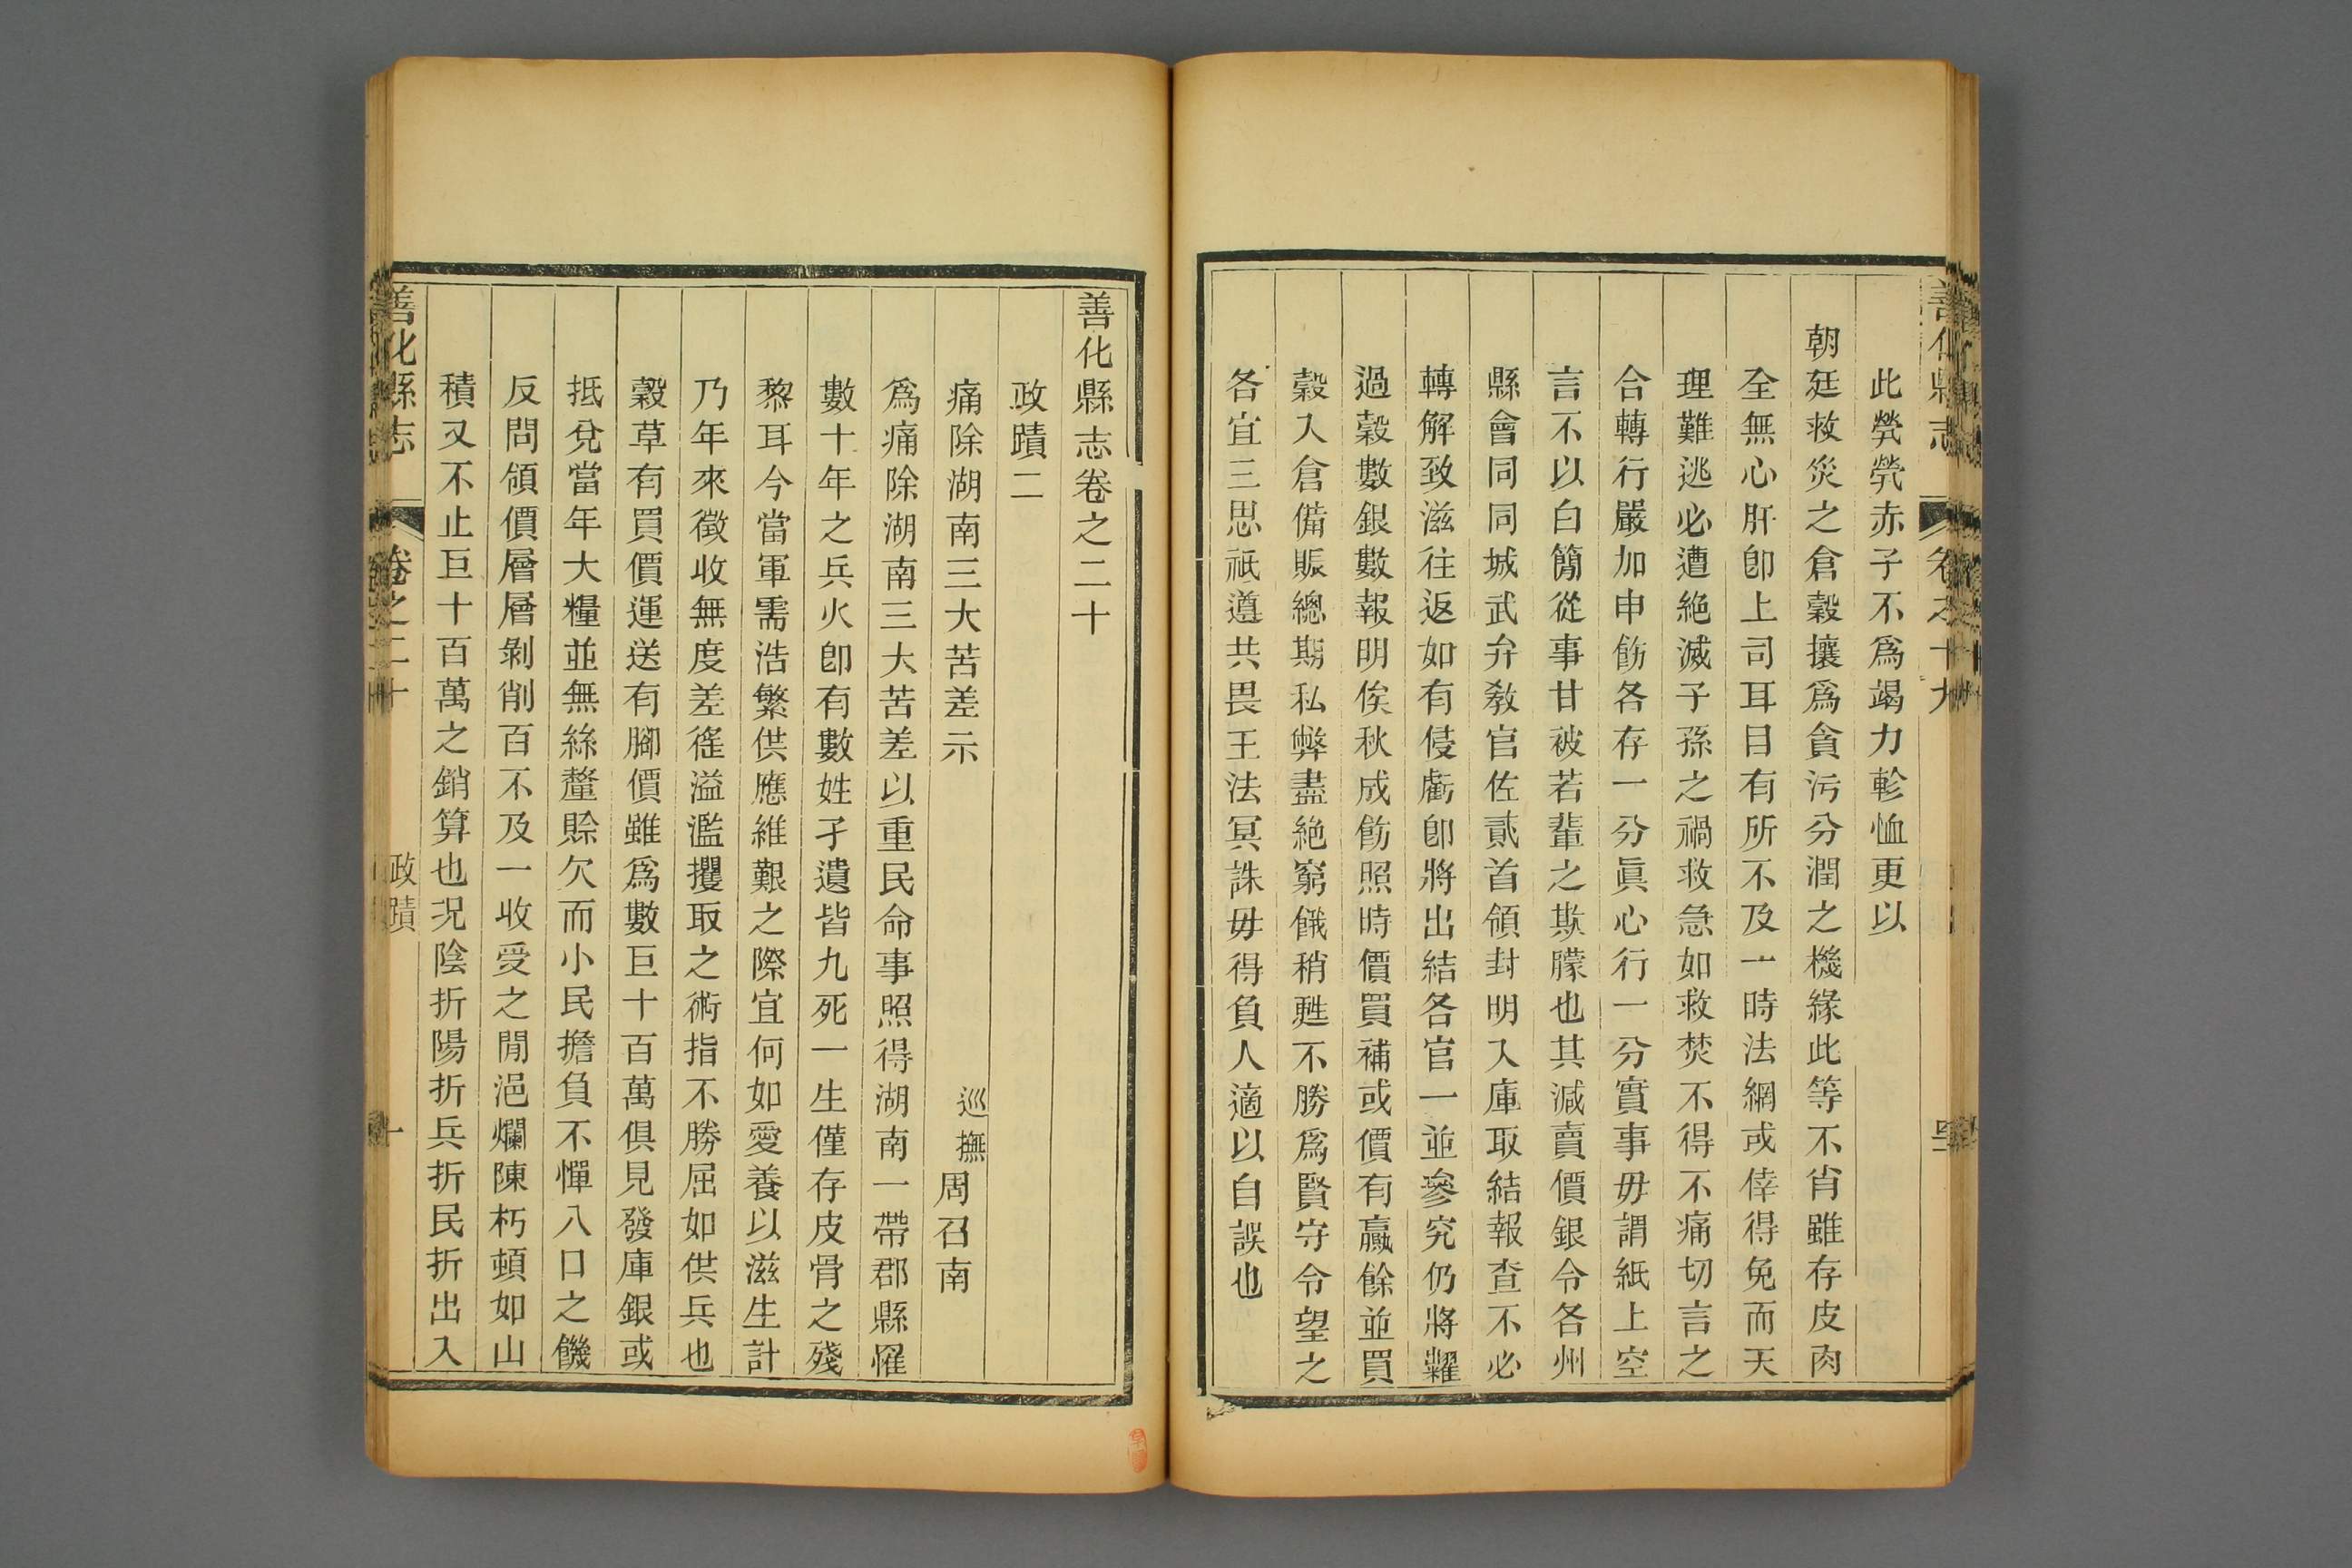 善化縣志
卷之十九
此煢煢赤子不爲竭力軫恤更以
朝廷救災之倉穀攘爲貪污分潤之機緣此等不肖雖存皮肉
全無心肝卽上司耳目有所不及一時法網或倖得免而天
理難逃必遭絶滅子孫之禍救急如救焚不得不痛切言之
合轉行嚴加申飭各存一分眞心行一分實事毋謂紙上空
言不以白簡從事甘被若輩之欺朦也其減賣價銀令各州
縣會同同城武弁教官佐貳首領封明入庫取結報查不必
轉解致滋往返如有侵虧卽將出結各官一並參究仍將糶
過穀數銀數報明俟秋成飭照時價買補或價有贏餘並買
穀入倉備賑總期私弊盡絶窮餓稍甦不勝爲賢守令望之
各宜三思祇遵共畏王法冥誅毋得負人適以自誤也
善化縣志卷之二十
政蹟二
痛除湖南三大苦差示
巡撫周召南
爲痛除湖南三大苦差以重民命事照得湖南一帶郡縣罹
數十年之兵火卽有數姓孑遺皆九死一生僅存皮骨之殘
黎耳今當軍需浩繁供應維艱之際宜何如愛養以滋生計
乃年來徵收無度差徭溢濫攫取之術指不勝屈如供兵也
穀草有買價運送有腳價雖爲數巨十百萬俱見發庫銀或
抵兌當年大糧並無絲釐賒欠而小民擔負不憚八口之饑
反問領價層層剝削百不及一收受之閒浥爛陳朽頓如山
積又不止巨十百萬之銷算也況陰折陽折兵折民折出入
善化縣志
卷之二十
政蹟
一